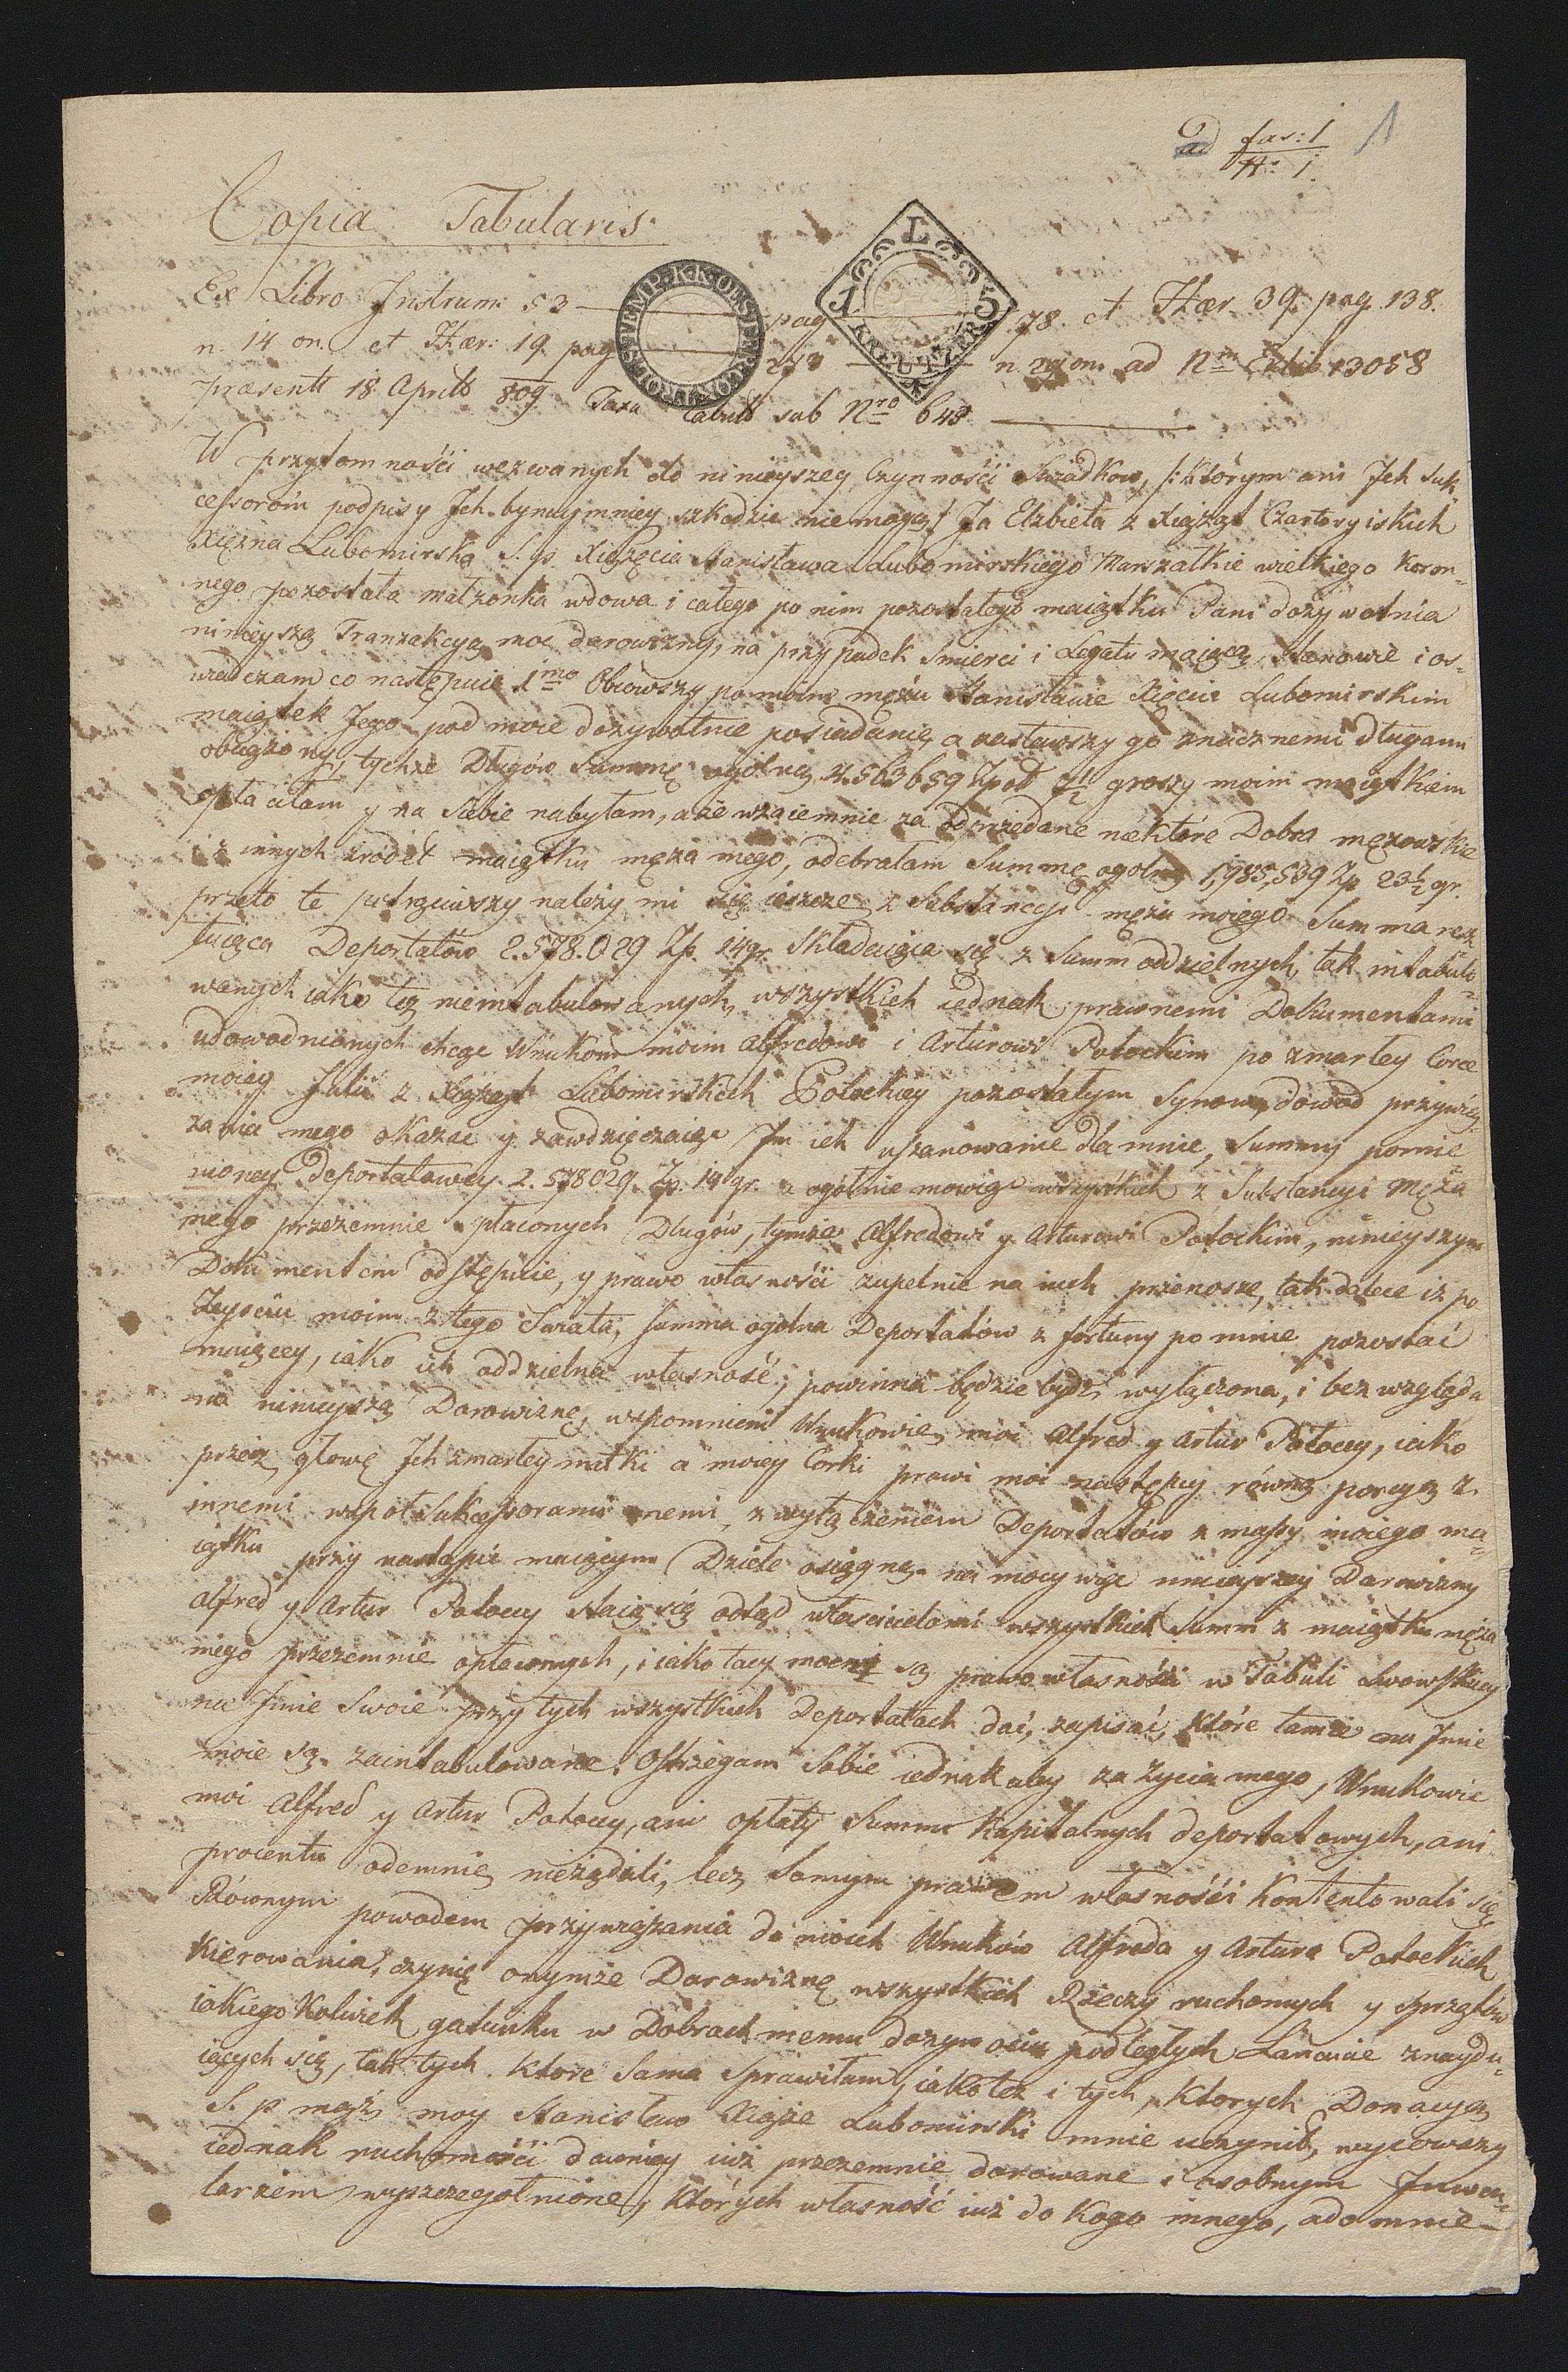 ad fas: 1
N: 1.
1
Copia Tabularis.
Ex Libro Instrum: 53 pag 78 et Hær. 39. pag. 138.
n. 14 on. et Hær: 19. pag 273 n. 29 on. ad Nrm Exhib. 13058
præsentt 18 Aprilis 809 Taxa Tabull sub Nro 648
STEMP. K. K. OESTER. CONTROLS
L 15 KREUTZER
W przytomności wezwanych do ninieyszey Czynności Swiadkow, /: Którym ani Jch Suk-
cessorom podpisy Jch bynaymniey szkodzić nie maią:/ Ja Elzbieta z Xiążąt Czartoryiskich
Xiężna Lubomirska S. p. Xiążęcia Stanisława Lubomirskiego Marszałkie wielkiego Koron-
nego pozostała małżonka wdowa i całego po nim pozostałego maiątku Pani dożywotnia
ninieyszą Tranzakcyą moc darowizny, na przypadek smierci i Legatu maiącą, stanowię i os-
wiadczam co następuie 1mo Obiowszy po moim mężu Stanisławie Xięciu Lubomirskim
maiątek Jego pod moie dożywotnie posiadanie, a zastawszy go znacznemi długami
obciążony, tychże Długów Summę ogólną 4.563659 Zpol 7½ groszy moim maiątkiem
spłaciłam y na Siebie nabyłam, a że wzaiemnie za odprzedane niektóre Dobra mężowskie
i z innych źródeł maiątku męża mego, odebrałam Summę ogolną 1,985,539 Zp 23½ gr.
przeto te potrąciwszy należy mi się ieszcze z Substancyi męża moiego Summa resz
tuiąca Deportatów 2.578.029 Zp. 14 gr. Składaiąca się z Summ oddzielnych, tak intabulo-
wanych iako też nieintabulowanych, wszystkich iednak prawnemi Dokumentami
udowodnionych chcąc Wnukom moim Alfredowi i Arturowi Potockim po zmarłey Corce
moiey Julii z Xiążąt Lubomirskich Potockiey pozostałym Synom, dowod przywią-
zania mego okazać y zawdzięczaiąc Jm ich uszanowanie dla mnie, Summy pomie
nioney Deportatowey 2.578029. Zp. 14 gr. a ogólnie mowiąc wszystkich z Substancyi Męża
mego przezemnie płaconych Długów, tymże Alfredowi y Arturowi Potockim, ninieyszym
Dokumentem odstępuie, y prawo własności zupełnie na nich przenoszę, tak dalece iż po
Zeyściu moim z tego Swiata, Summa ogolna Deportatów z fortuny po mnie pozostać
maiącey, iako ich oddzielna własność, powinna będzie bydź wyłączona, i bez względu
na ninieyszą Darowiznę, wspomnieni Wnukowie moi Alfred y Artur Potoccy, iako
przez głowę Jch zmarłey matki a moiey Corki prawi moi następcy równą porcyą z
innemi wspołSukcessorami memi, z wyłączeniem Deportatów z massy moiego ma-
iątku przy nastąpić maiącym Dziele osiągną. na mocy więc ninieyszey Darowizny
Alfred y Artur Potoccy staią się odtąd właścicielami wszystkich Summ z maiątku męża
mego przezemnie opłaconych, i iako tacy mocni są prawo własności w Tabuli Lwowskiey
na Jmie Swoie przy tych wszystkich Deportatach dać, zapisać, które tamże na Jmie
moie są zaintabulowane. Ostrzegam Sobie iednak aby za życia mego, Wnukowie
moi Alfred y Artur Potoccy, ani opłaty Summ Kapitalnych deportatowych, ani
procentu odemnie nieżądali, lecz Samym prawem własności Kontentowali się,
Równym powodem przywiązania do moich Wnuków Alfreda y Artura Potockich
Kierowania, czynię onymże Darowiznę wszystkich Rzeczy ruchomych y sprzętów
iakiegoKolwiek gatunku w Dobrach memu dożywociu podległych Łańcucie znaydu-
iących się, tak tych które Sama Sprawiłam, iakoteż i tych, których Donacyą
S. p mąż moy Stanisław Xiąże Lubomirski mnie uczynił, wyiowszy
iednak ruchomości dawniey iuż przezemnie darowane i osobnym Jnwen-
tarzem wyszczegolnione, których własność iuż do Kogo innego, ado mnie